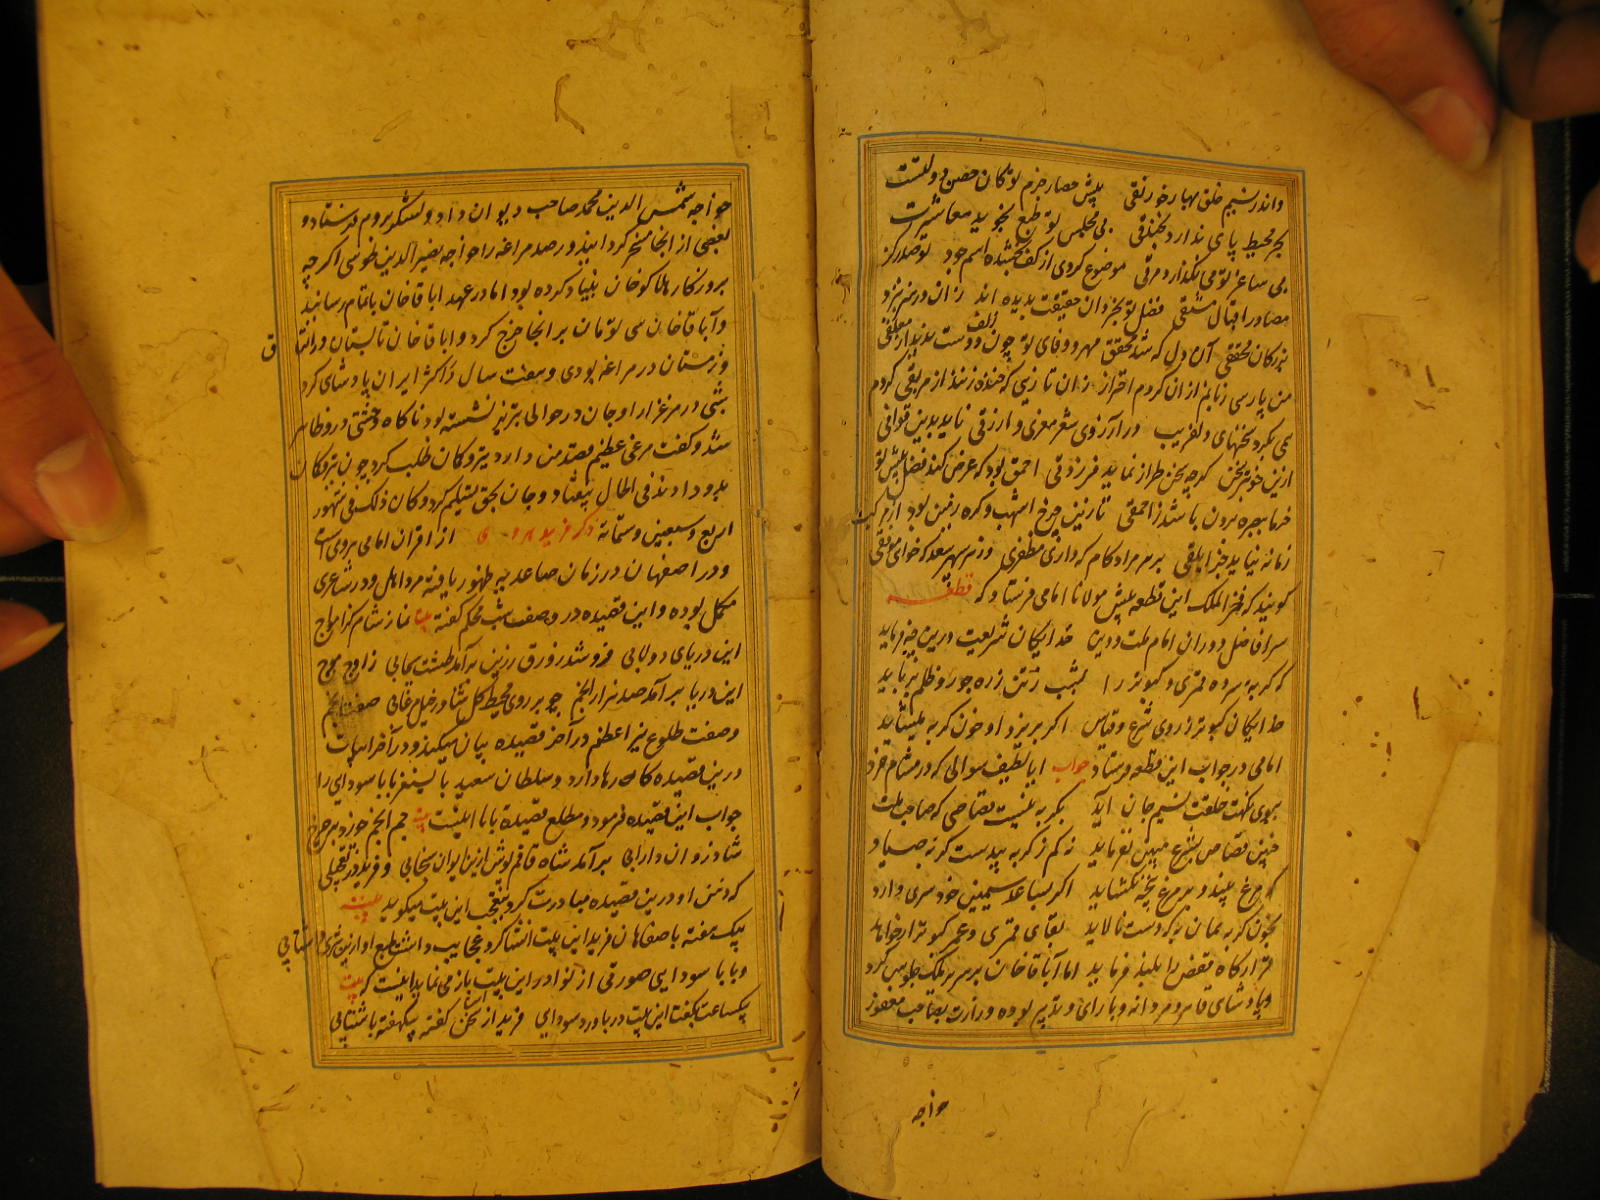 واندر نسیم خلق بهار خورنقی پیش حصار حزم تو کان حصن دولتست
بحر محیط پای ندارد بخندقی بی مجلس تو طبع نجوید معاشرت
بی ساغر تو می نگذارد مروقی موضوع کردی از کف بخشنده اسم جود تو مصدر کز
مصادر اقبال مشتقی فضل تو بخردان حقیقت بدیده اند زان در هنر بنزد
بزرکان محققی آن دل که شد محقق مهر و وفای تو چون زلف دوست
من پارسی زبانم از ان کردم احتراز زان تازیی که خنده زنند از مر یقی کردم
می بکرد سخنهای دلفریب در آرزوی شعر معزی و ازرقی ناید بدین قوافی
ازین خوبتر سخن کرچه سخن طراز نماید فرزدقی احمق بود که عرض کند فضل پیش تو
خرما ببصره بردن باشد ز احمقی تا زین چرخ اشهب و کره زمین بود از
زمانه نیاید جز ابلقی بر مرکب مراد و کام کرداری مظفری وز سپهر سعد که خواهی موفقی
کویند که فخر الملک این قطعه پیش مولانا امامی فرستاد که قطعه
سر افاضل دوران امام ملت و دین خدایکان شریعت درین چه فرماید
که کربه سر ده قمری و کبوتر را بشب ز تن ز ره جور و ظلم برباید
خدایکان کبوتر ز روی شرع و قیاس اکر بریزد او خون کربه
امامی در جواب این قطعه فرستاد جواب ایا لطیف سوالی که در مشام خرد
ببوی نکهت خلقت نسیم جان آید بکربه نیست قصاصی که صاحب ملت
چنین قصاص بشرع مبین نفرماید نه کم ز کربه بیدست کربه صیاد
که مرغ بیند و بر مرغ پنجه نکشاید اکر بساعد سیمین خود سری دارد
بخون کربه همان به که دست نالاید بقای قمری و عمر کبوتر ار خواهد
قرارکاه قفص را بلند فرماید اما آباقاخان بر سریر ملک جلوس کرد
و پادشاهی قاهر و مردانه و با رای و تدبیر بوده و وزارت بصاحب مغفور
خواجه
خواجه شمس الدین محمد صاحب دیوان داد و لشکر بروم فرستاد و
بعضی از انجا مسخر کردانید و رصد مراغه را خواجه نصیر الدین طوسی اکرچه
بروزکار هلاکوخان بنیاد کرده بود اما در عهد اباقاخان باتمام رسانید
و آباقاخان سی تومان بر انجا خرج کرد و اباقاخان تابستان در الاتاق
و زمستان در مراغه بودی و هفت سال در اکثر ایران پادشاهی کرد
شبی در مرغزار اوجان در حوالی تبریز نشسته بود ناکاه وحشتی درو ظاهر
شد و کفت مرغی عظیم قصد من دارد تیر و کمان طلب کرد چون تیر و کمان
بدو دادند فی الحال بیفتاد و جان بحق تسلیم کرد و کان ذلک فی شهور
اربع و سبعین و ستمائة ذکر فرید از اقران امامی هروی است
و در اصفهان در زمان صاعدیه ظهور یافته مرد اهل و در شاعری
مکمل بوده و این قصیده در وصف شب محکم کفته بیت نماز شام کز امواج
این دریای دولابی فرو شد زورق زرین برآمد طشت سحابی ز اوج موج
این دریا برآمد صد هزار انجم چو بر روی محیط کل شناور خیل مرغابی صفت انجم
و صفت طلوع نیر اعظم در آخر قصیده بیان میکند و در آخر ابیات
درین قصیده کارها دارد و سلطان سعید بایسنغر بابا سودایی را
جواب این قصیده فرمود و مطلع قصیده بابا اینست بیت جم انجم چو زد بر چرخ
شادروان دارابی برآمد شاه قاقم پوش ازین ایوان سنجابی و فرید
که ذهن او درین قصیده مبادرت کرد بتعجب این بیت میکوید بیت
بیک هفته باصفاهان فرید این بیت انشا کرد
و بابا سودایی صورتی از نوادر این بیت باز می نماید اینست که بیت
بیکساعت بکفت این بیت در باورد سودایی فرید از کفته بیکهفته باشتابی